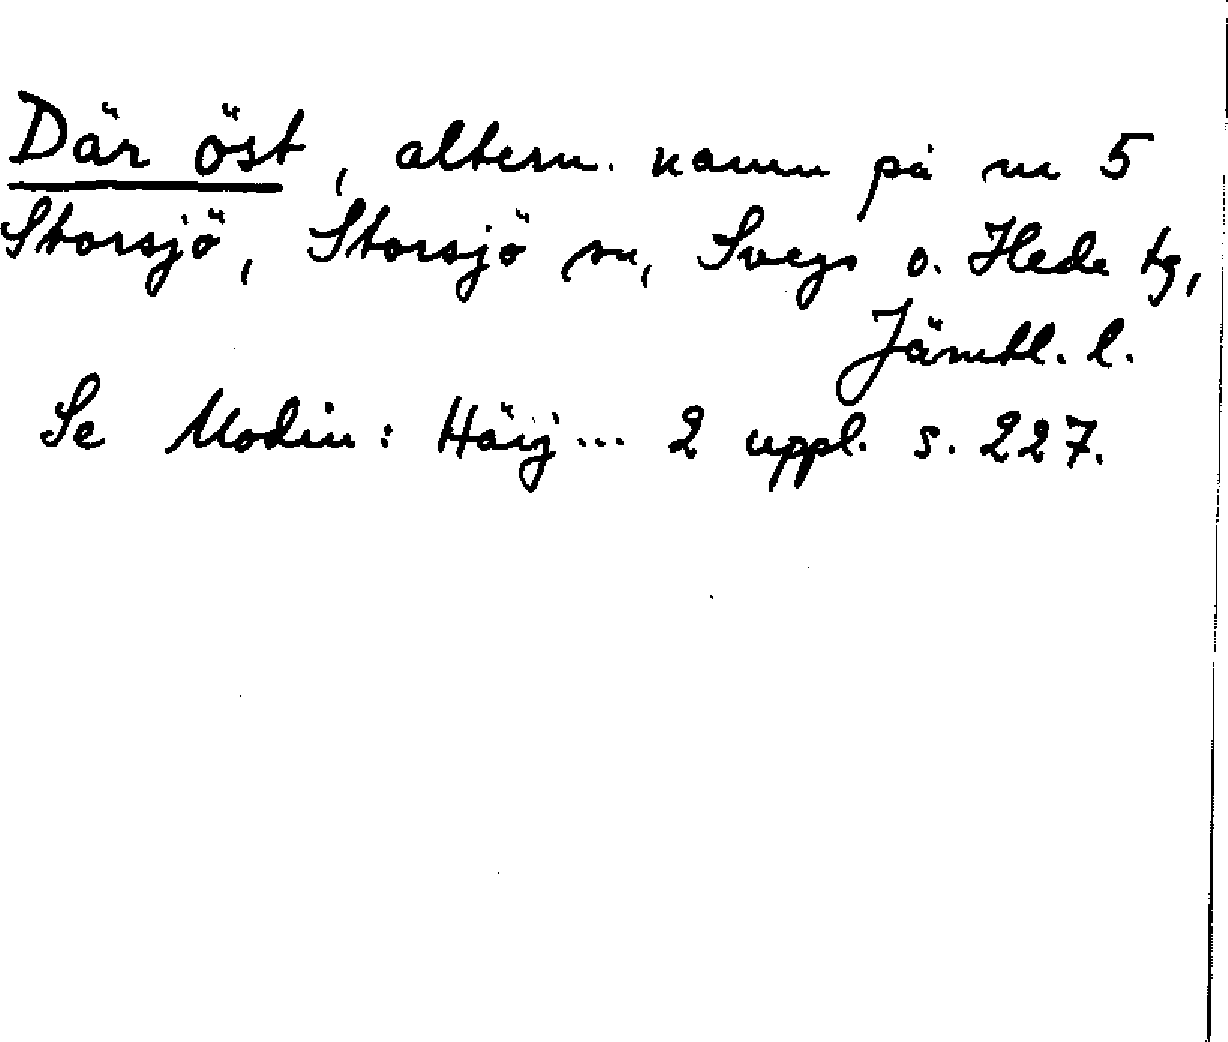 Där öst, altern. namn på nr 5
Storsjö, Storsjö sn, Svegs o. Hede tg,
Jämtl. l.
Se Modin: Härj... 2 uppl. s. 227.